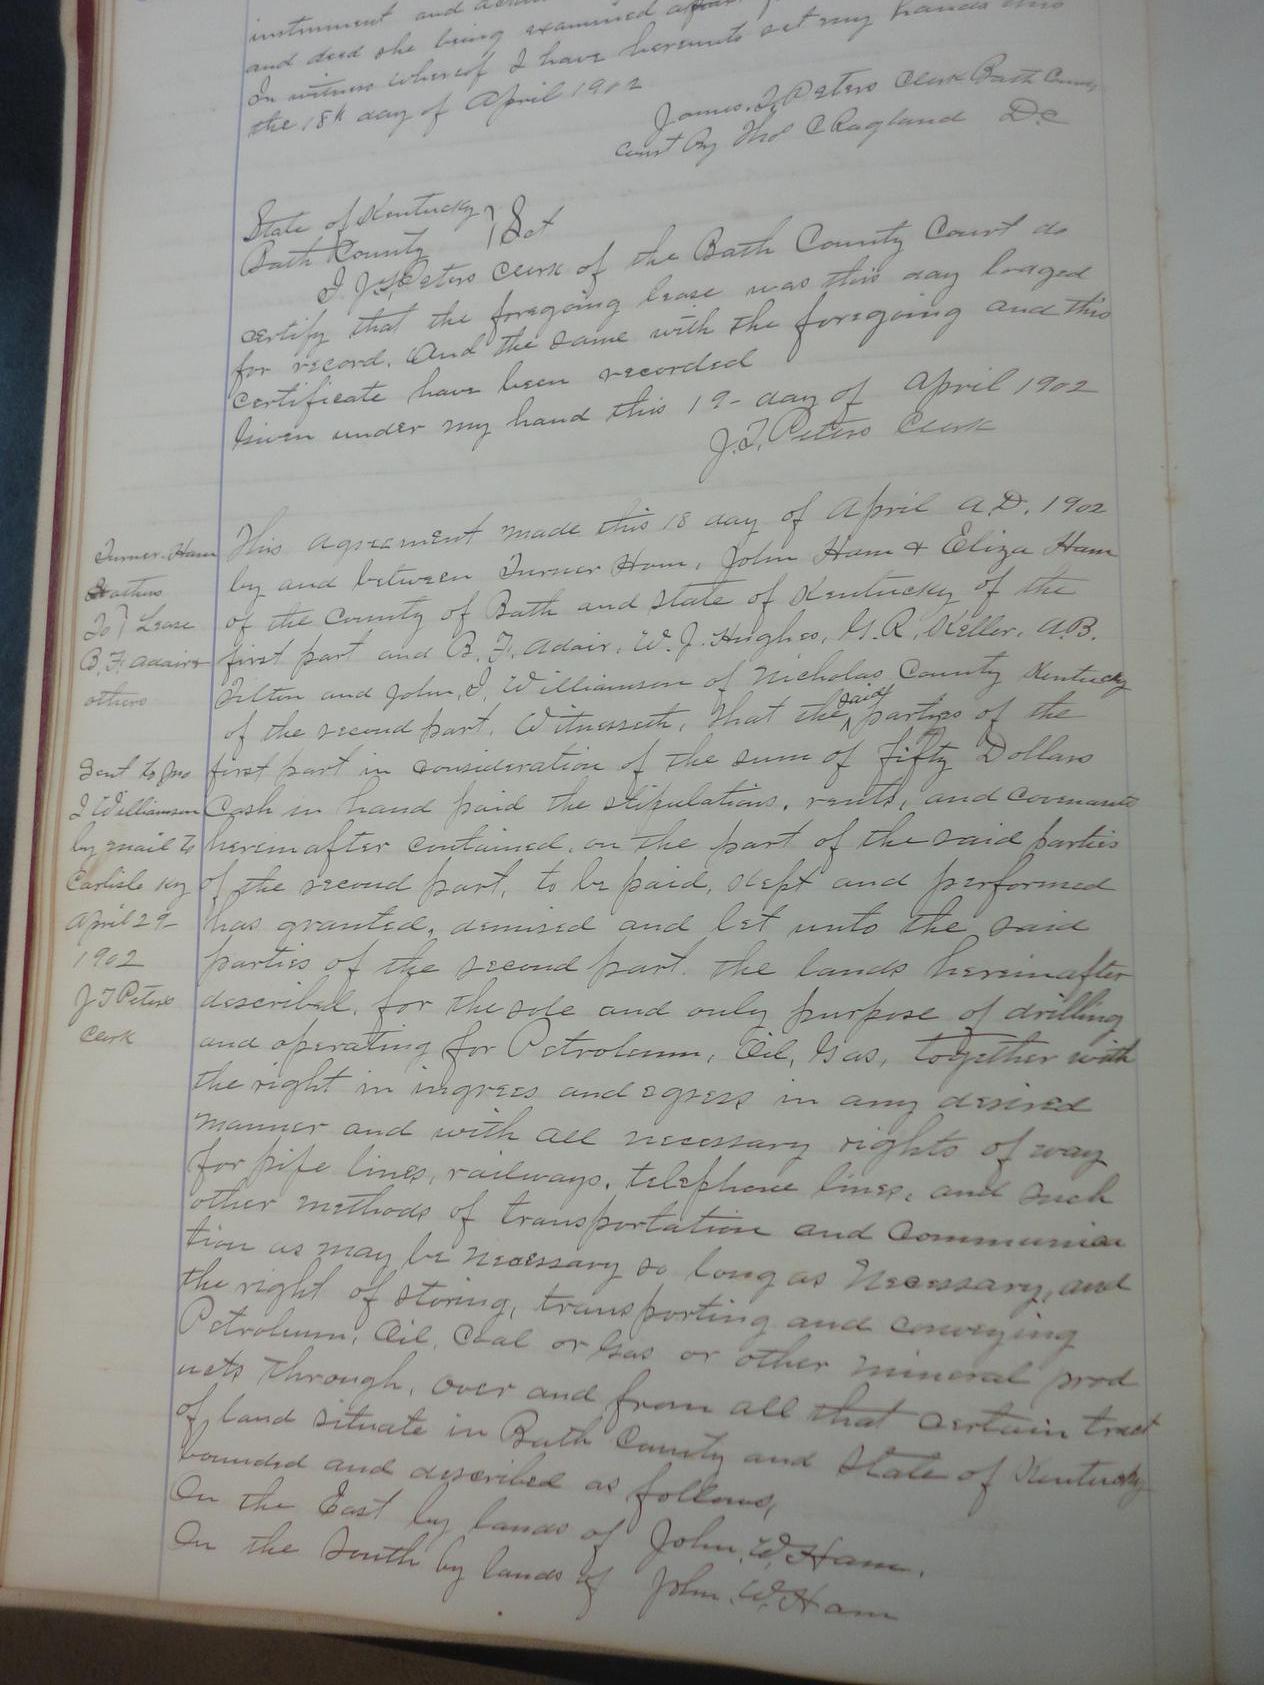 instrument and
and deed she being examined apart
In witness whereof I have hereunto set my hands this
the 18th day of April 1902
James. T. Peters Clerk Bath County
court By Thos C Ragland D.C
State of Kentucky } Sct
Bath County
I. J. T. Peters Clerk of the Bath County Court do
certify that the foregoing lease was this day lodged
for record. And the same with the foregoing and this
certificate have been recorded
Given under my hand this 19- day of April 1902
J. T. Peters Clerk
Turner Ham
& others
To } Lease
B. F. Adair &
others
Sent to Jno
I Williamson
by mail to
Carlisle Ky
April 29-
1902
J T Peters
Clerk
This agreement made this 18 day of April A.D. 1902
by and between Turner Ham, John Ham & Eliza Ham
of the County of Bath and state of Kentucky of the
first part and B. F. Adair, W. J. Hughes, G. R. Keller, A.B.
Tilton and John. I. Williamson of Nicholas County Kentucky
of the second part. Witnesseth, that the said parties of the
first part in consideration of the sum of fifty Dollars
Cash in hand paid the stipulations, rents, and covenants
hereinafter contained, on the part of the said parties
of the second part, to be paid, kept and performed
has granted, demised and let unto the said
parties of the second part. the lands hereinafter
described, for the sole and only purpose of drilling
and operating for Petroleum, Oil, Gas, together with
the right in ingress and egress in any desired
manner and with all necessary rights of way
for pipe lines, railways, telephone lines, and such
other methods of transportation and communica
tion as may be necessary so long as necessary, and
the right of storing, transporting and conveying
Petroleum, Oil, Coal or Gas or other mineral prod
ucts through, over and from all that certain tract
of land situate in Bath County and State of Kentucky
bounded and described as follows,
On the East by lands of John. W. Ham.
On the South by lands of John. W. Ham